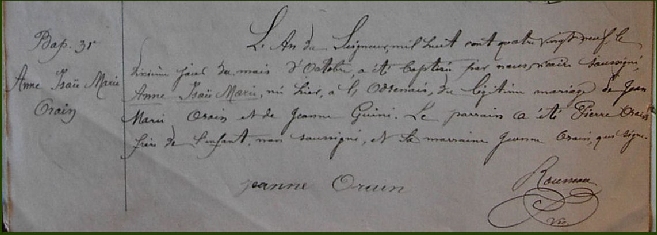 Bap. 31
Anne Isaïe Marie
Orain
L'An du Seigneur, mil huit cent quatre vingt neuf le
jour du mois d'Octobre, a été baptisé par nous soussigné
Anne Isaïe Marie, né hier, à la du légitime mariage de Jean
Marie Orain et de Jeanne Le parrain a été Pierre Orain
frère de l'enfant, non soussigné, et la marraine Jeanne Orain, qui signe.
jeanne Orain